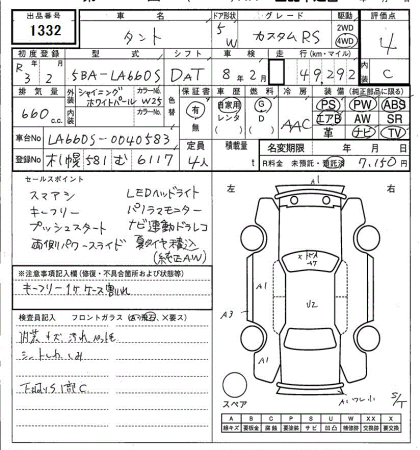 出品番号 車名 ドア形状 グレード 駆動 評価点
1332 タント 5 W カスタムRS 2WD 4WD 4
初度登録 型式 シフト 車検 走行(km・マイル) 内装
R3 2 5BA-LA660S DAT 8年2月 49,292 C
排気量 外装 シャイニングホワイトパール カラーNo. W25 色替 車歴 燃料 冷房 装備(純正部品に限る)
660 c.c. 内装 カラーNo. 有 無 自家用 レンタ G D AAC PS PW ABS
エアB AW SR
革 ナビ TV
車台No LA660S-0040583 定員 積載量 名変期限 年 月 日
登録No 札幌 581 む 6117 4人 t R料金 未預託・預託済 7,150円
セールスポイント
スマアシ LEDヘッドライト
キーフリー パノラマモニター
プッシュスタート ナビ連動ドラレコ
両側パワースライド 夏タイヤ積込
(純正AW)
※注意事項記入欄(修復・不具合箇所および状態等)
キーフリー1ケケース割れ
検査員記入 フロントガラス
内装キズ、汚れ
シートしみ、こみ
左 右
A1
A3
A1
A1
U2
スペア
S/T
A B C P S U W X XX
線キズ 要板金 腐蝕 要塗装 サビ 凹凸 補修跡 交換跡 要交換